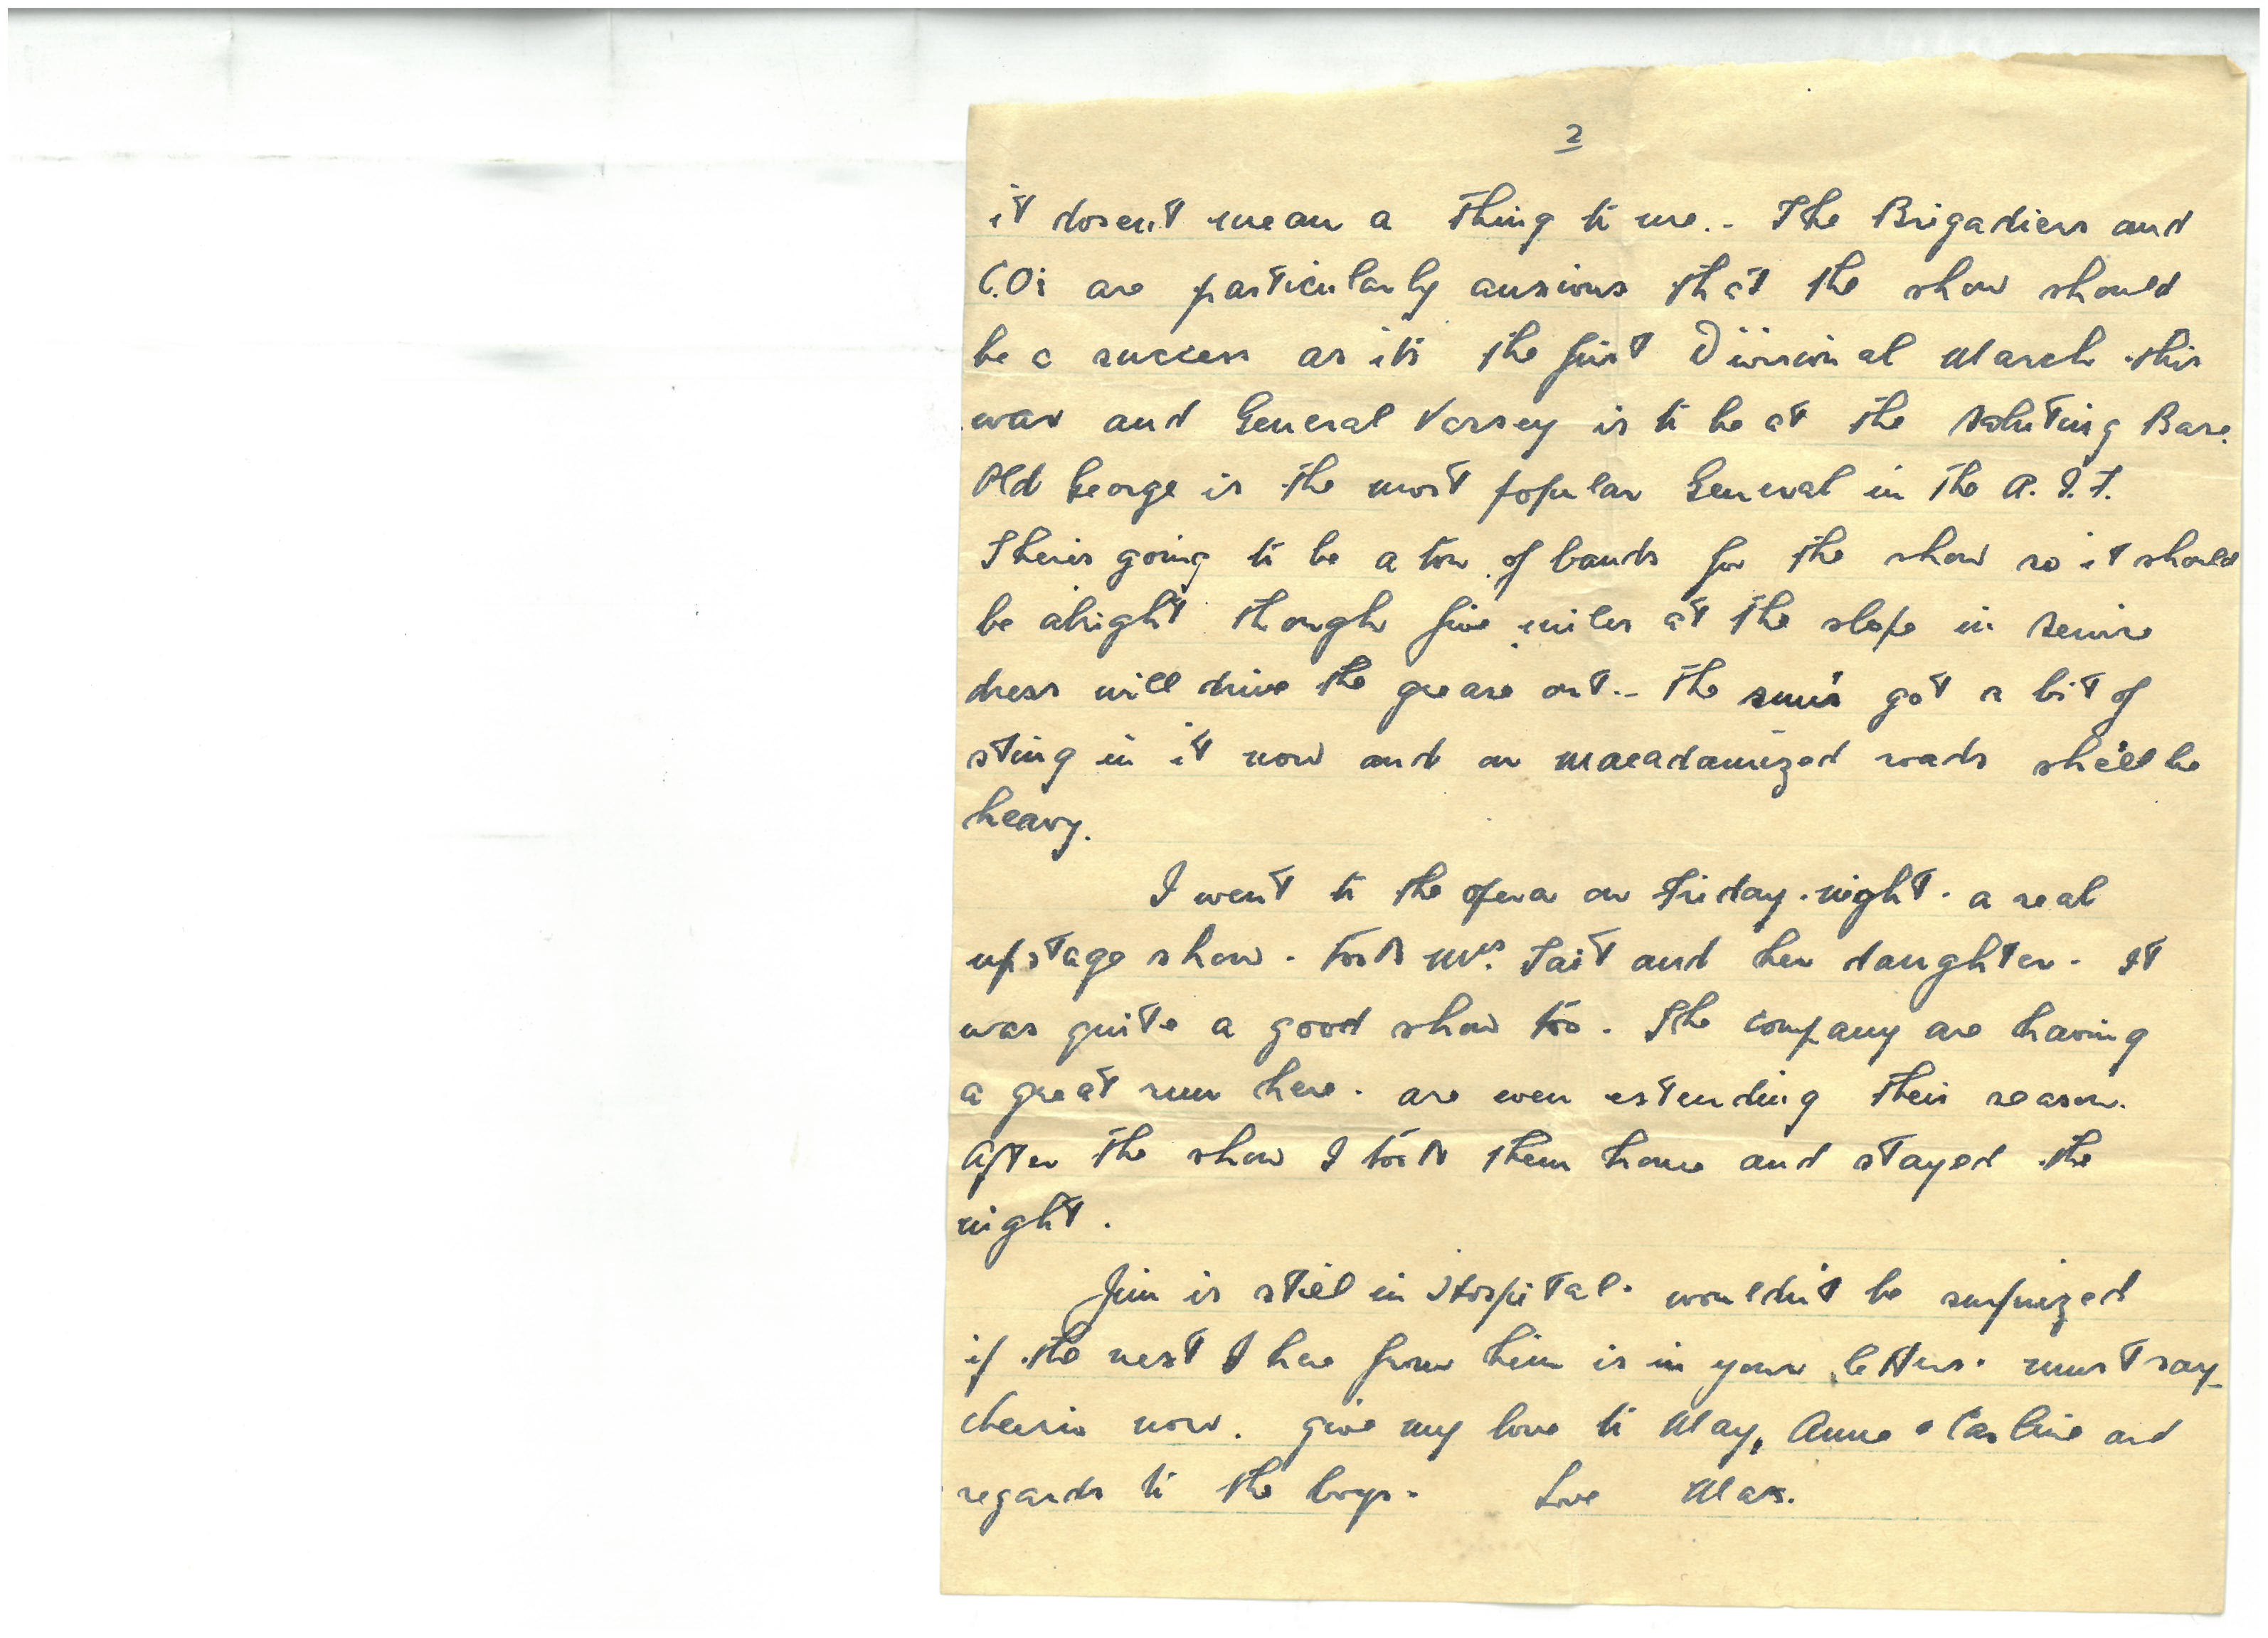 2
it dosent mean a thing to me.. The Brigadiers and
C.Os are particularly anxious that the show should
be a success as its the first Divisional March this
war and General Vasey is to be at the Saluting Base.
Old George is the most popular General in the A.I.F.
Theirs going to be a ton of bands for the show so it should
be alright though five miles at the slope in service
dress will drive the grease out.. the sun's got a bit of
sting in it now and on macadamized roads she'll be
heavy.
I went to the opera on Friday. night. a real
upstage show. took Mrs. Tait and her daughter. It
was quite a good show too. The company are having
a great run here. are even extending their season.
After the show I took them home and stayed the
night.
Jim is still in Hospital. wouldn't be surprized
if the next I hear from him is in your letters. must say
cheerio now. give my love to May, Anne & Carline and
regards to the boys. Love Max.